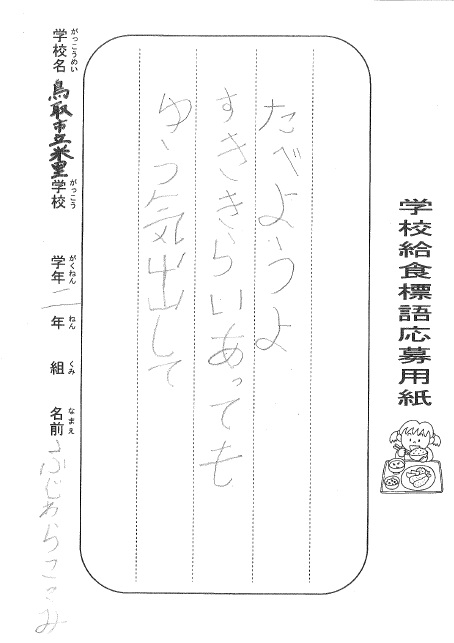 学校給食標語応募用紙
たべようよ
すききらいあっても
ゆう気出して
がっこうめい がっこう がくねん ねん くみ なまえ
学校名 鳥取市立米里 学校 学年 二 年 組 名前 ふじわらここみ